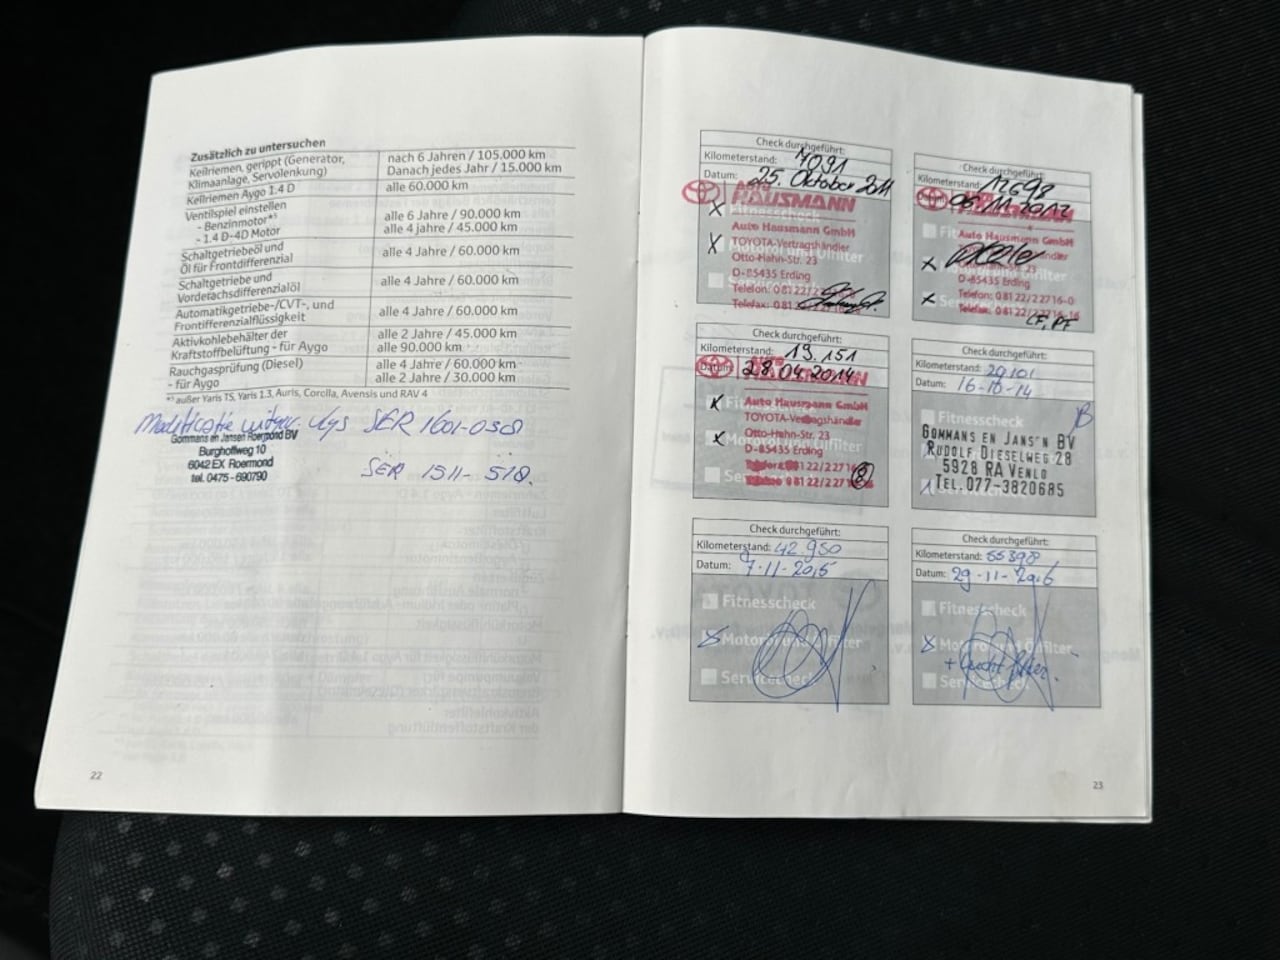 Zusätzlich zu untersuchen
Keilriemen, gerippt (Generator, Klimaanlage, Servolenkung) nach 6 Jahren / 105.000 km
Danach jedes Jahr / 15.000 km
Keilriemen Aygo 1.4 D alle 60.000 km
Ventilspiel einstellen
- Benzinmotor*⁵ alle 6 Jahre / 90.000 km
- 1.4 D-4D Motor alle 4 Jahre / 45.000 km
Schaltgetriebeöl und
Öl für Frontdifferenzial alle 4 Jahre / 60.000 km
Schaltgetriebe und
Vorderachsdifferenzialöl alle 4 Jahre / 60.000 km
Automatikgetriebe-/CVT-, und
Frontifferenzialflüssigkeit alle 4 Jahre / 60.000 km
Aktivkohlebehälter der alle 2 Jahre / 45.000 km
Kraftstoffbelüftung - für Aygo alle 90.000 km
Rauchgasprüfung (Diesel) alle 4 Jahre / 60.000 km
- für Aygo alle 2 Jahre / 30.000 km
*⁵ außer Yaris TS, Yaris 1.3, Auris, Corolla, Avensis und RAV 4
SER 1601-0308
Gommans en Jansen Roermond BV
Burghoffweg 10
6042 EX Roermond
tel. 0475-690790
SER 1511-518.
22
Check durchgeführt:
Kilometerstand: 7091
Datum: 25. Oktober 2011
AUTO
HAUSMANN
Fitnesscheck
Auto Hausmann GmbH
TOYOTA-Vertragshändler
Otto-Hahn-Str. 23
D-85435 Erding
Telefon: 0 81 22/2 27 16-0
Telefax: 0 81 22/2 27 16-16
Check durchgeführt:
Kilometerstand: 12698
06.11.2012
HAUSMANN
Auto Hausmann GmbH
Otto-Hahn-Str. 23
D-85435 Erding
Telefon: 0 81 22/2 27 16-0
Telefax: 0 81 22/2 27 16-16
CF, PF
Check durchgeführt:
Kilometerstand: 19.151
Datum: 28.04.2014
HAUSMANN
Auto Hausmann GmbH
TOYOTA-Vertragshändler
Otto-Hahn-Str. 23
D-85435 Erding
Check durchgeführt:
Kilometerstand: 20101
Datum: 16-10-14
Fitnesscheck
GOMMANS EN JANSEN BV
RUDOLF DIESELWEG 28
5928 RA VENLO
TEL. 077-3820685
Check durchgeführt:
Kilometerstand: 42.950
Datum: 7-11-2015
Fitnesscheck
Motoröl und Ölfilter
Servicecheck
Check durchgeführt:
Kilometerstand: 55398
Datum: 29-11-2016
Fitnesscheck
Motoröl und Ölfilter
Servicecheck
23